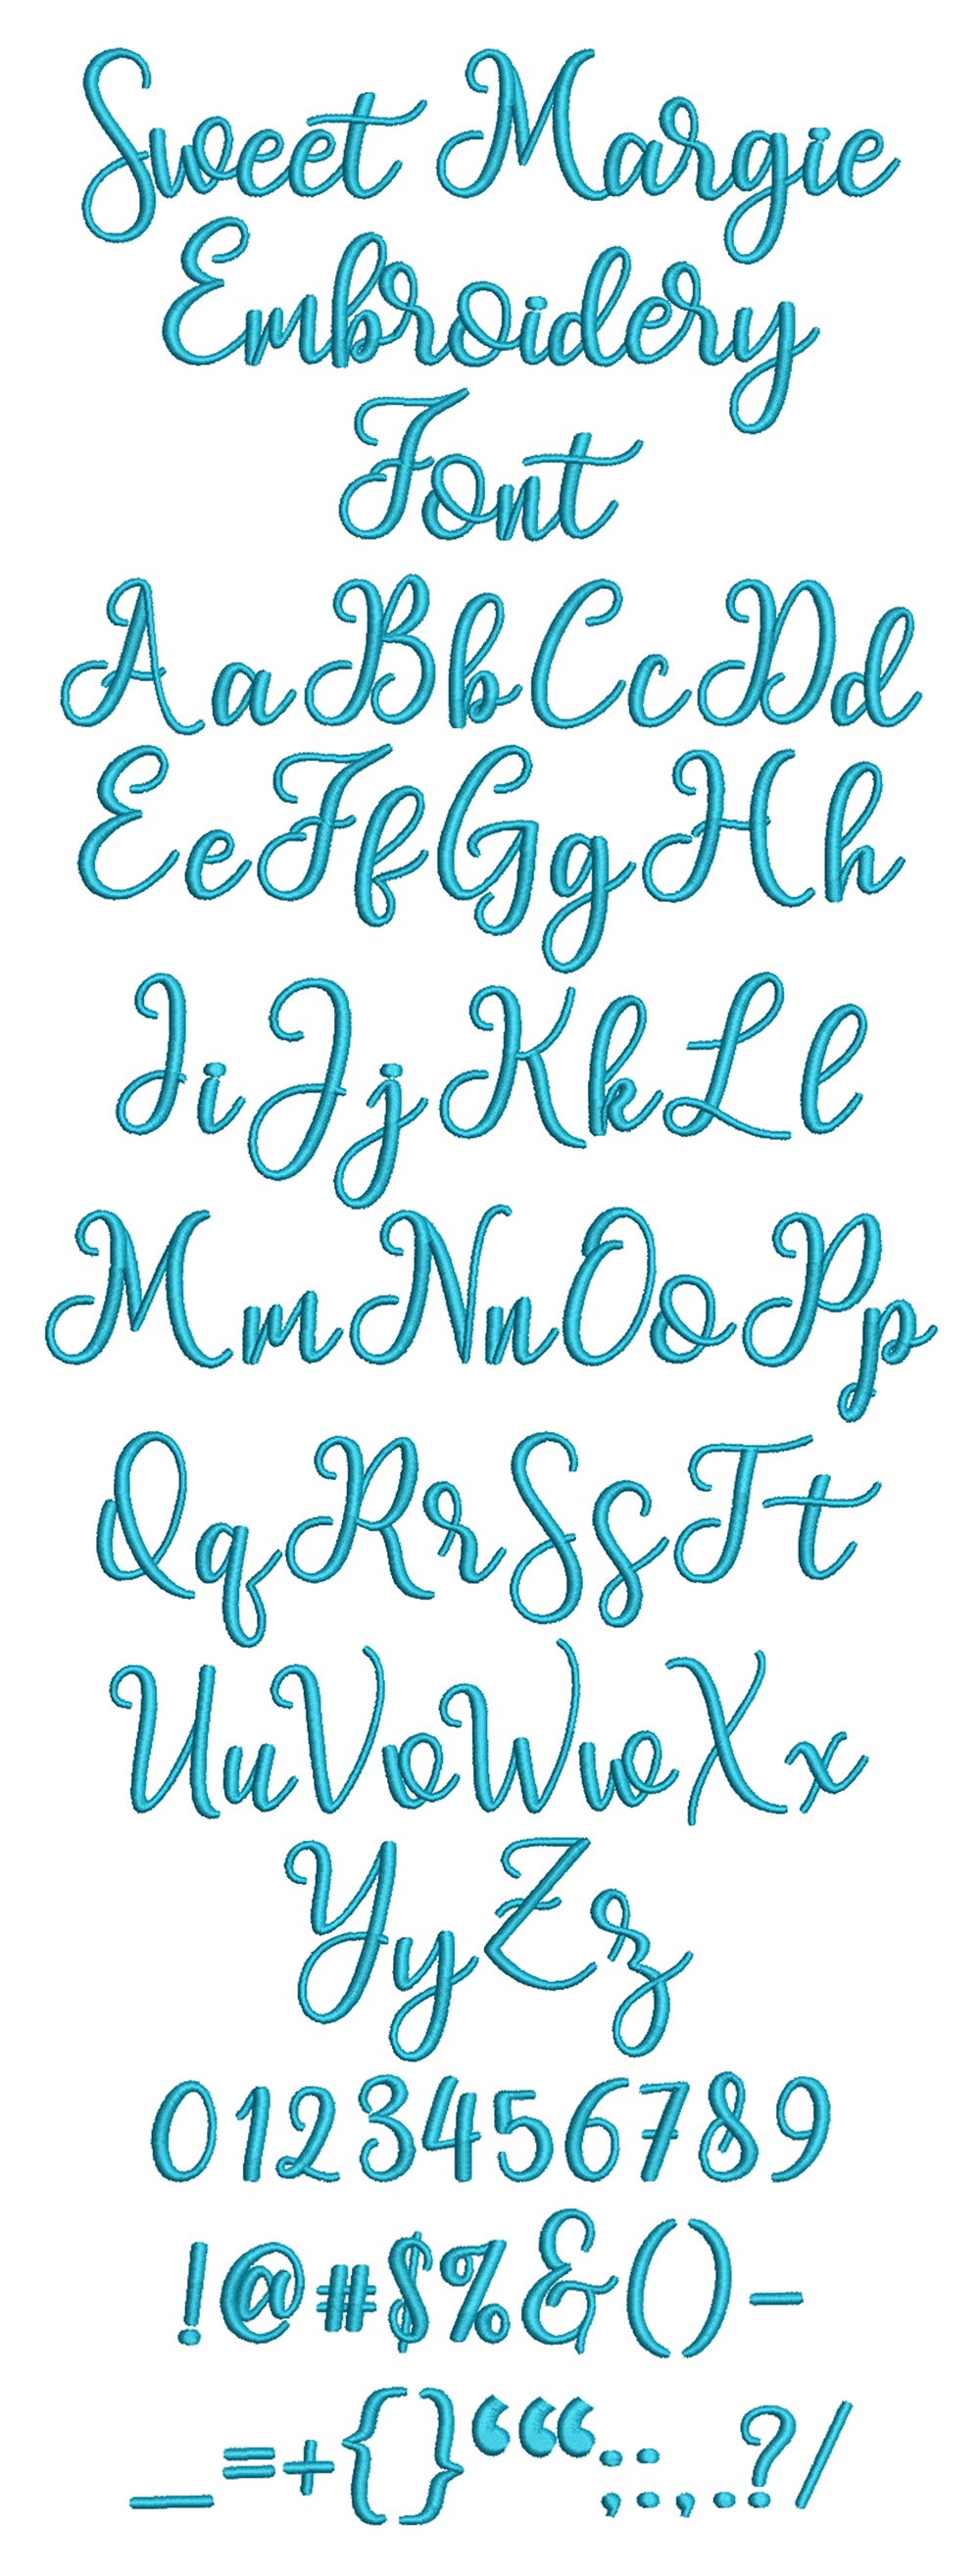 Sweet Margie
Embroidery
Font
AaBbCcDd
EeFfGgHh
IiJjKkLl
MmNnOoPp
QqRrSsTt
UuVvWwXx
YyZz
0123456789
!@#$%&()-
_=+{}‘“;:,.?/